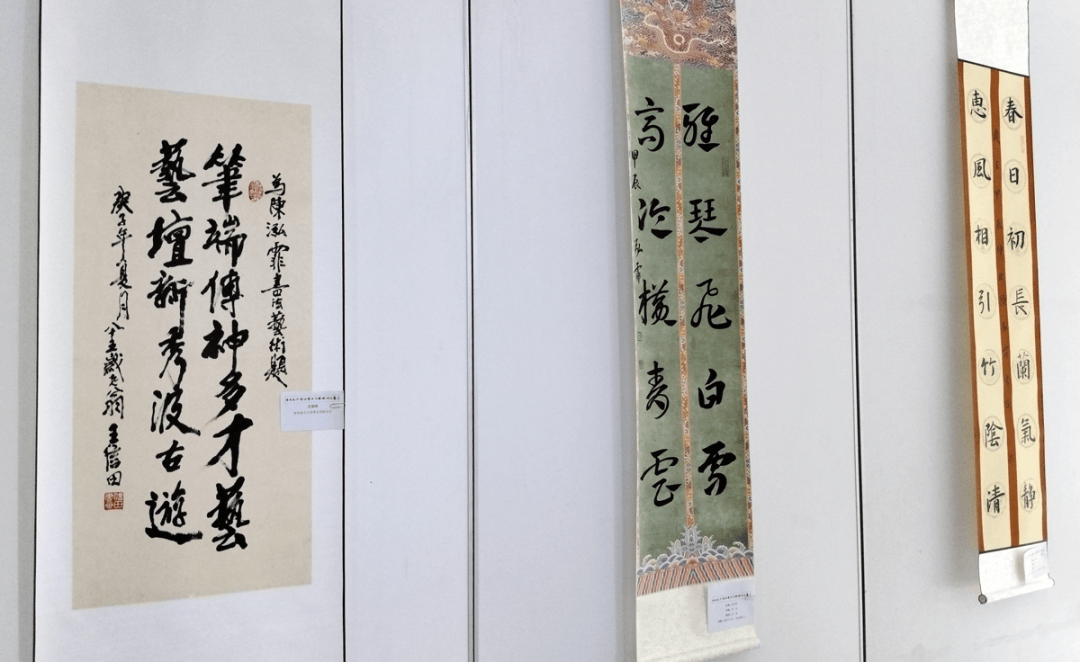 為陳泓霏書法藝術題
筆端傳神多才藝
藝壇新秀波古遊
庚子年夏月八十五歲老翁王信田
雅琴飛白雪
高論橫青雲
甲辰泓霏
春日初長蘭氣靜
恵風相引竹陰清